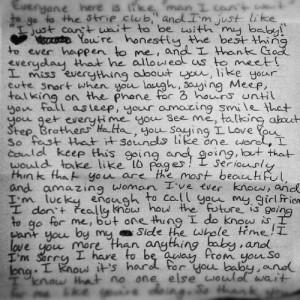 Everyone here is like, man I can't wait
to go to the strip club, and I'm just like
"I just can't wait to be with my baby!"
You're honestly the best thing
to ever happen to me, and I thank God
everyday that he allowed us to meet!
I miss everything about you, like your
cute snort when you laugh, saying Meep,
talking on the phone for 8 hours until
you fall asleep, your amazing smile that
you get everytime you see me, talking about
Step Brothers HaHa, you saying I Love You
So fast that it sounds like one word, I
could keep this going and going, but that
would take like 10 pages! I seriously
think that you are the most beautiful
and amazing woman I've ever know, and
I'm lucky enough to call you my Girlfriend
I don't really know how the future is going
to go for me, but one thing I do know is I
want you by my side the whole time! I
love you more than anything baby, and
I'm sorry I have to be away from you so
long. I know it's hard for you baby, and
I know that no one else would wait